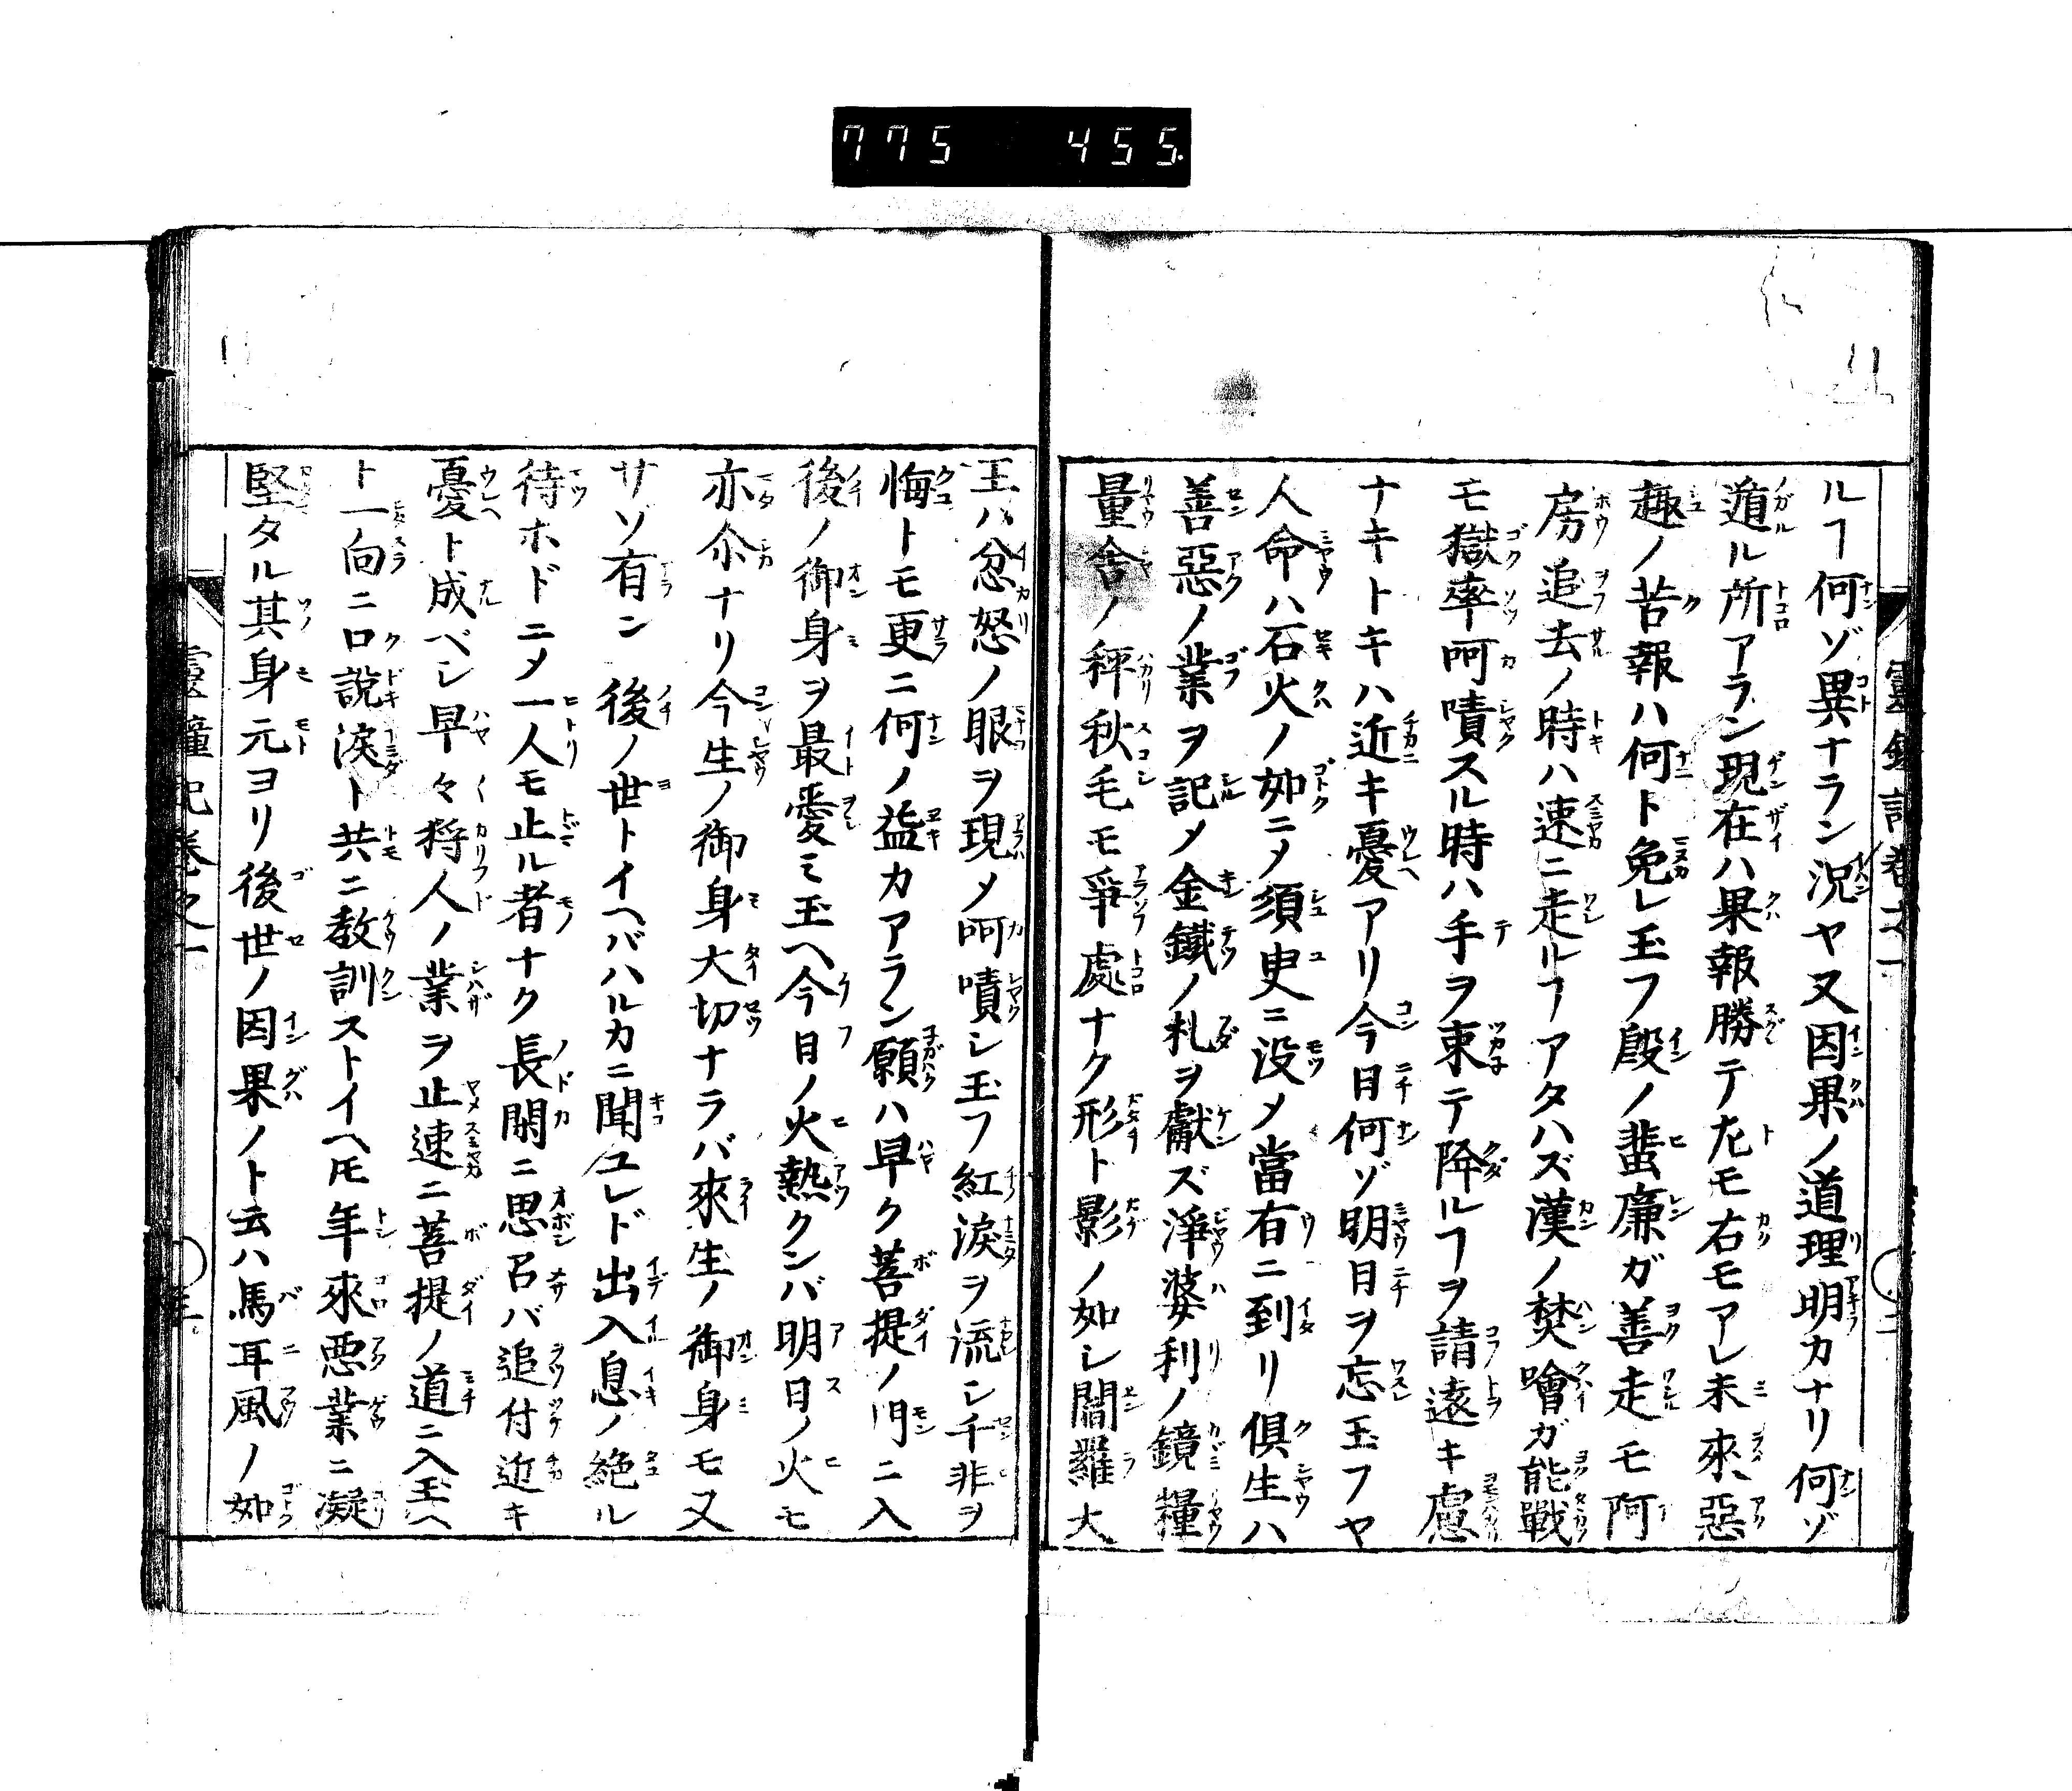 775 455.
ルヿ何ゾ異ナラン况ヤ又因果ノ道理明カナリ何ゾ
遁ル所アラン現在ハ果報勝テ尢モ右モアレ未來惡
趣ノ苦報ハ何ト免レ玉フ殷ノ蜚廉ガ善走モ阿
房追去ノ時ハ速ニ走ルヿアタハズ漢ノ焚噲ガ能戰
モ獄率呵嘖スル時ハ手ヲ束テ降ルヿヲ請遠キ慮
ナキトキハ近キ憂アリ今日何ゾ明日ヲ忘玉フヤ
人命ハ石火ノ如ニメ須臾ニ没メ當有ニ到リ俱生ハ
善惡ノ業ヲ記メ金鐵ノ札ヲ獻ズ淨婆利ノ鏡糧
量舍ノ秤秋毛モ爭處ナク形ト影ノ如シ閻羅大
王ハ忿怒ノ眼ヲ現メ呵嘖シ玉フ紅淚ヲ流シ千非ヲ
悔トモ更ニ何ノ益カアラン願ハ早ク菩提ノ門ニ入
後ノ御身ヲ最愛ミ玉ヘ今日ノ火熱クンバ明日ノ火モ
亦尒ナリ今生ノ御身大切ナラバ來生ノ御身モ又
サゾ有ン後ノ世トイヘバハルカニ聞ユレド出入息ノ絶ル
待ホドニメ一人モ止ル者ナク長閑ニ思召バ追付近キ
憂ト成ベシ早々狩人ノ業ヲ止速ニ菩提ノ道ニ入玉ヘ
ト一向ニ口說淚ト共ニ敎訓ストイヘ𪜈年來悪業ニ凝
堅タル其身元ヨリ後世ノ因果ノト云ハ馬耳風ノ如